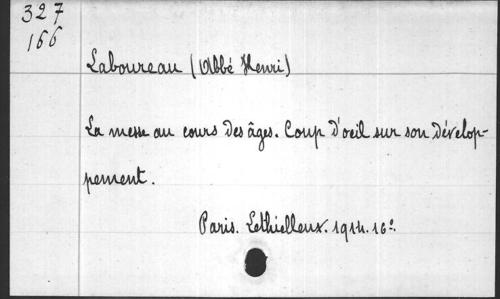 327
166
Laboureau (Abbé Henri)
La messe au cours des âges. Coup d'oeil sur son dévelop-
pement.
Paris. Lethielleux. 1914. 16º.